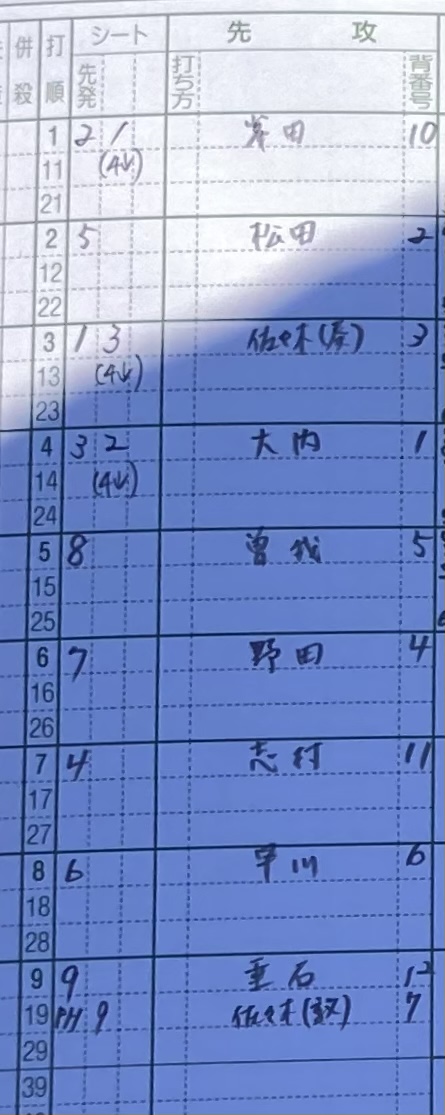 併殺 打順 シート 先発 打ち方 先 攻 背番号
1 2 1 岸田 10
11 (4↓)
21
2 5 松田 2
12
22
3 1 3 佐々木( ) 3
13 (4↓)
23
4 3 2 大内 1
14 (4↓)
24
5 8 曽我 5
15
25
6 7 野田 4
16
26
7 4 志村 11
17
27
8 6 早川 6
18
28
9 9 重石 12
19 PH 9 佐々木( ) 7
29
39